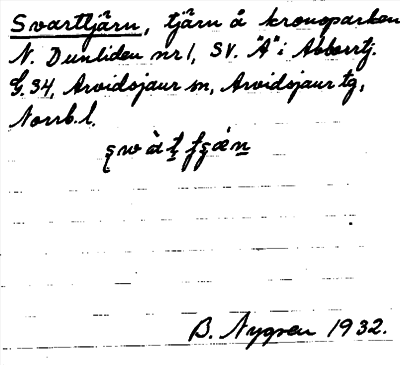 Svarttjärn, tjärn å kronoparken
N. Dunliden nr 1, SV. "A" i Abborrtj.
G. 34, Arvidsjaur sn, Arvidsjaur tg,
Norrb. l.
B. Nygren 1932.